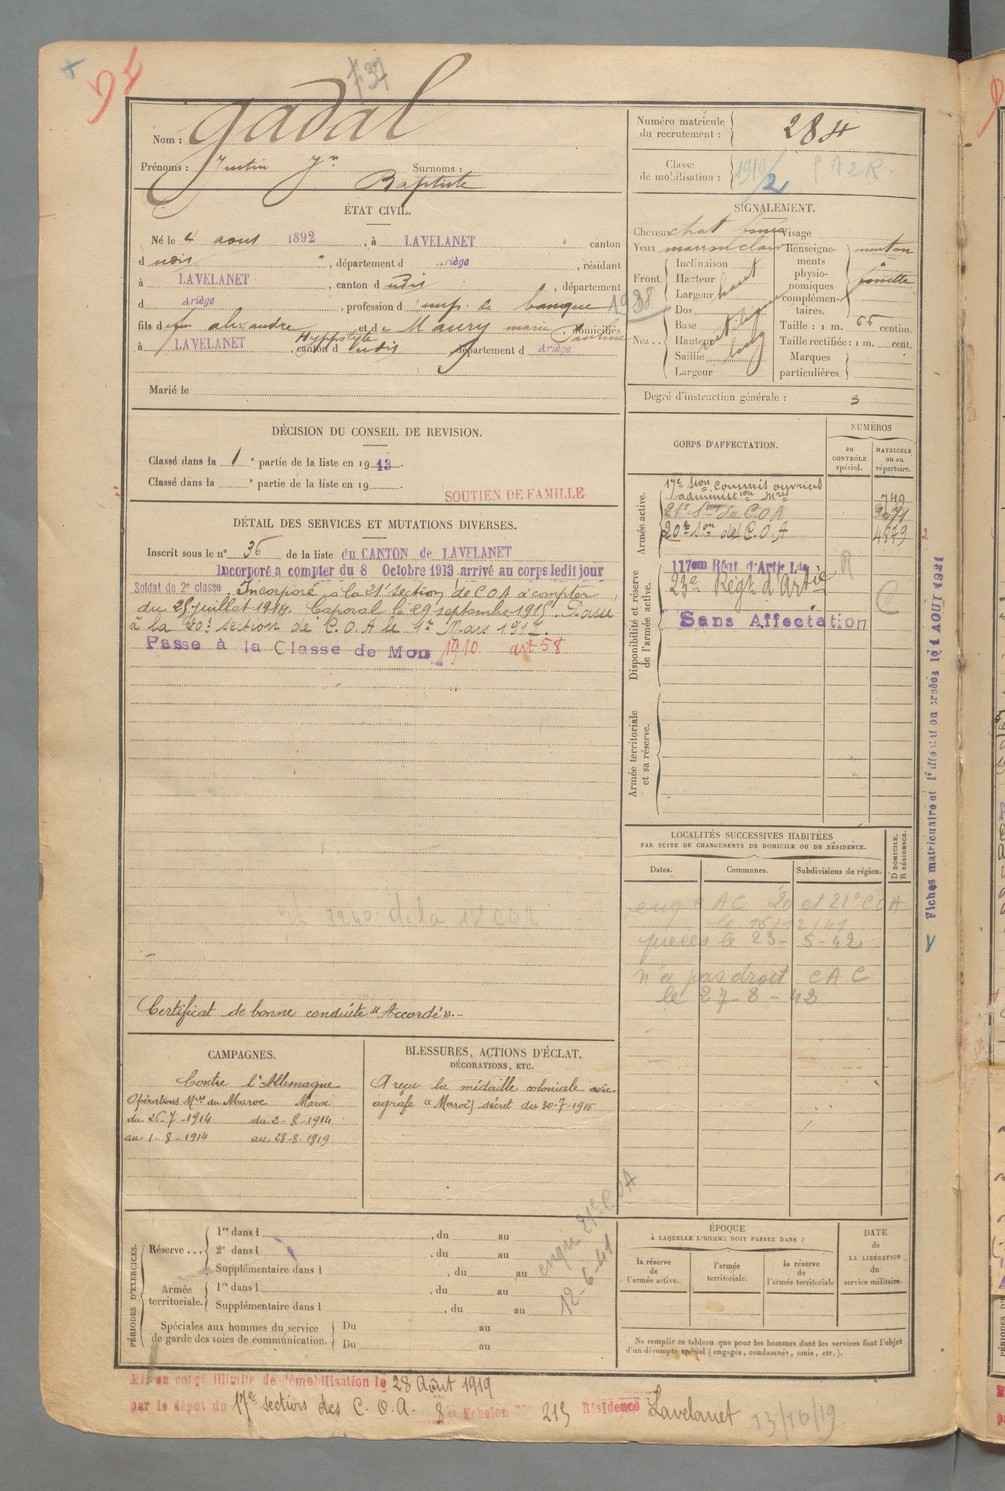 94
737
Nom : Gadal
Prénoms : Justin Jn Baptiste Surnoms :
ÉTAT CIVIL.
Né le 4 aout 1892, à LAVELANET, canton
d udis, département d Ariège, résidant
à LAVELANET, canton d udis, département
d Ariège, profession d emp. de banque
fils de feu alexandre Hyppolyte et de Maury marie Faurine, domiciliés
à LAVELANET, canton d udis, département d Ariège
Marié le
DÉCISION DU CONSEIL DE REVISION.
Classé dans la 1e partie de la liste en 1913.
Classé dans la e partie de la liste en 19
SOUTIEN DE FAMILLE
DÉTAIL DES SERVICES ET MUTATIONS DIVERSES.
Inscrit sous le n° 36 de la liste du CANTON de LAVELANET
Incorporé a compter du 8 Octobre 1913 arrivé au corps ledit jour
Soldat de 2e classe Incorporé à la 21e section de C.O.A à compter
du 25 juillet 1914. Caporal le 29 septembre 1915 Passé
à la 20e section de C.O.A le 1er Mars 1917.
Passé à la Classe de Mob 1910 art 58
3940 de la 17e COA
Certificat de bonne conduite "Accordé".-
CAMPAGNES.
Contre l'Allemagne
Opérations Mres du Maroc Maroc
du 26-7-1914 du 2-8-1914
au 1-8-1914 au 28-8-1919
BLESSURES, ACTIONS D'ÉCLAT,
DÉCORATIONS, ETC.
A reçu la médaille coloniale avec
agrafe "Maroc" décret du 30-7-1915
PÉRIODES D'EXERCICES.
Réserve... 1re dans l , du au
2e dans l , du au
Supplémentaire dans l , du au
Armée territoriale. 1re dans l , du au
Supplémentaire dans l , du au
Spéciales aux hommes du service
de garde des voies de communication. Du au
Du au
12-6-41
Numéro matricule
du recrutement : 284
Classe
de mobilisation : 1910/2
SIGNALEMENT.
Cheveux chat foncé Visage
Yeux marron clair
Front. Inclinaison
Hauteur haut
Largeur
1938
Nez... Dos
Base
Hauteur
Saillie
Largeur
Renseignements
physionomiques
complémentaires. menton
à
fossette
Taille : 1 m. 65 centim.
Taille rectifiée : 1 m. cent.
Marques
particulières.
Degré d'instruction générale : 3
CORPS D'AFFECTATION.
NUMÉROS
au
CONTRÔLE
spécial.
MATRICULE
ou au
répertoire.
Armée active.
17e Son commis ouvriers
administon Mres 749
21e Son de C.O.A
20e Son de C.O.A 4879
Disponibilité et réserve
de l'armée active.
117eme Régt d'Artie Lde
23e Régt d'Artie R
Sans Affectation
Armée territoriale
et sa réserve.
LOCALITÉS SUCCESSIVES HABITÉES
PAR SUITE DE CHANGEMENTS DE DOMICILE OU DE RÉSIDENCE.
Dates.
Communes.
Subdivisions de région.
D DOMICILE.
R RÉSIDENCE.
enq CAC 20 et 21e COA
le 16/12/41
pieces le 23-5-42
n'a pas droit CAC
le 27-8-42
ÉPOQUE
À LAQUELLE L'HOMME DOIT PASSER DANS :
la réserve
de
l'armée active.
l'armée
territoriale.
la réserve
de
l'armée territoriale
DATE
de
LA LIBÉRATION
du
service militaire.
Ne remplir ce tableau que pour les hommes dont les services font l'objet
d'un décompte spécial (engagés, condamnés, omis, etc.).
Mis en congé illimité de démobilisation le 28 Août 1919
par le dépôt du 17e sections des C.O.A. 8e Echelon No 215 Résidence Lavelanet 13/10/19